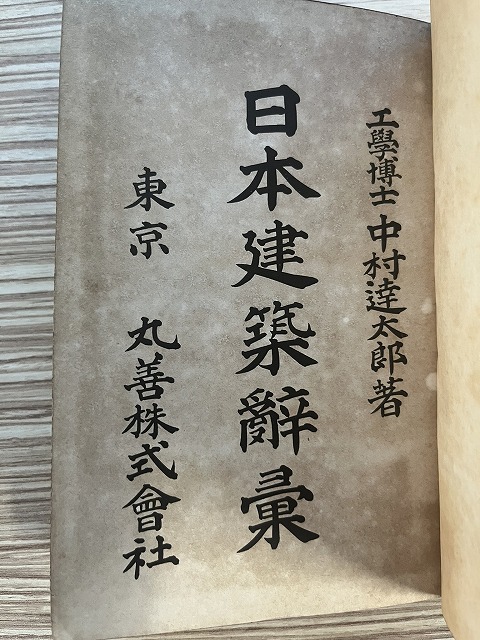 工學博士 中村達太郎著
日本建築辭彙
東京 丸善株式會社